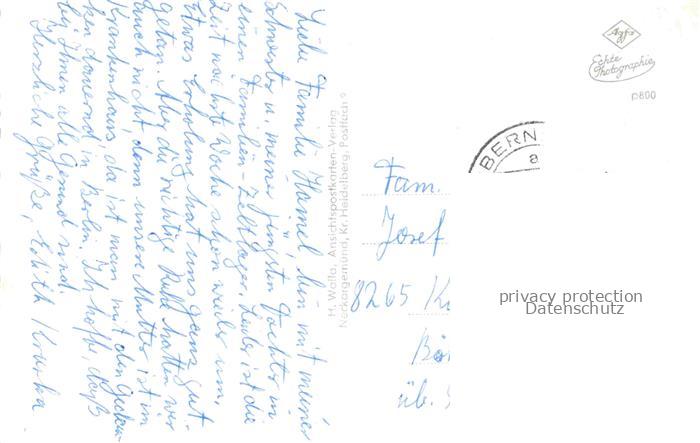 Liebe Familie Hamel, bin mit meiner
Schwester u. meiner jüngsten Tochter in
einem Familien-Zeltlager. Leider ist die
Zeit nächste Woche schon wieder um,
etwas Erholung hat uns ganz gut
getan. Aber die richtige Ruhe hatten wir
auch nicht, denn unsere Mutter ist im
Krankenhaus, da ist man mit den Gedan-
ken dauernd in Berlin. Ich hoffe, daß
bei Ihnen alle Gesund sind.
Herzliche Grüße, Edith
H. Wolfa, Ansichtspostkarten-Verlag
Neckargemünd, Kr. Heidelberg, Postfach 9
Agfa
Echte
Photographie
p800
BERN
a
Fam.
Josef
8265
üb.
privacy protection
Datenschutz